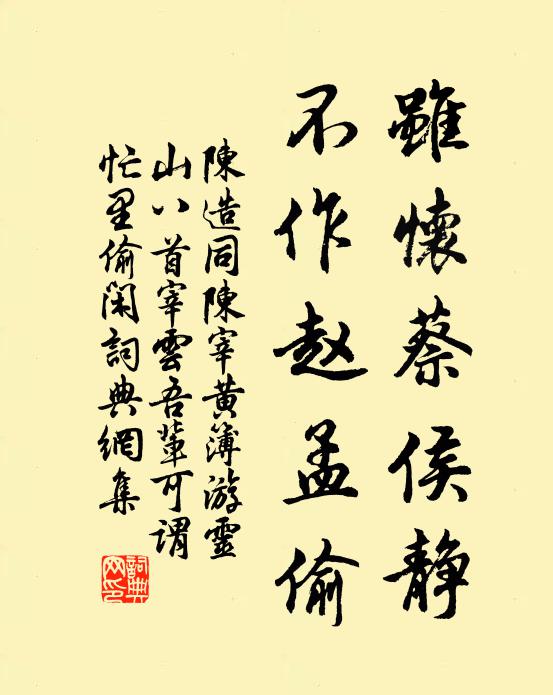 雖懷蔡侯静
不作赵孟偷
陳造同陳宰黄簿游靈
山八首宰雲吾輩可謂
忙里偷闲詞典網集
詞典
网印